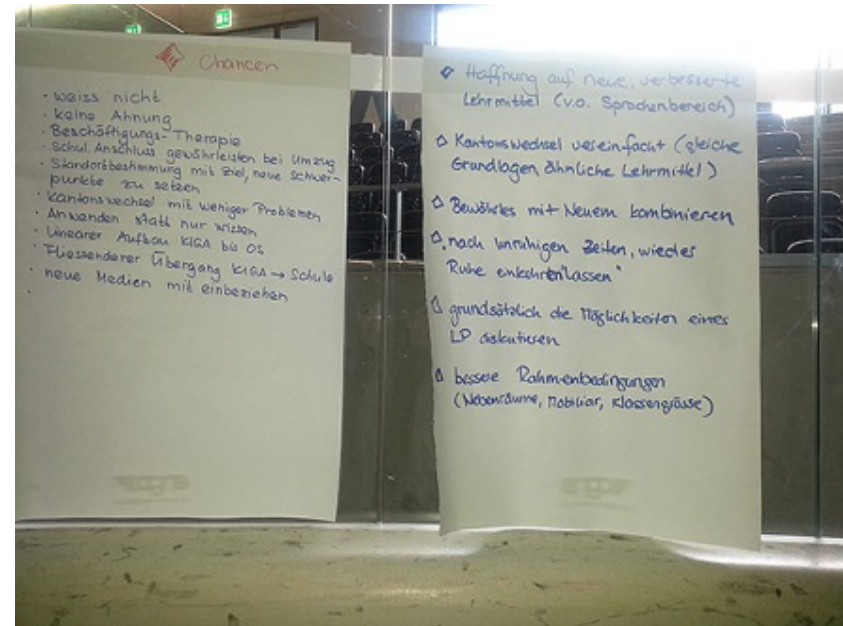 Chancen
· weiss nicht
· keine Ahnung
· Beschäftigungs-Therapie
· Schul. Anschluss gewährleisten bei Umzug
· Standortbestimmung mit Ziel, neue Schwer-
punkte zu setzen
· Kantonswechsel mit weniger Problemen
· Anwenden statt nur wissen
· Linearer Aufbau KIGA bis OS
· Fliessenderer Übergang KIGA → Schule
· neue Medien mit einbeziehen
·
Hoffnung auf neue, verbesserte
Lehrmittel (v.a. Sprachenbereich)
Kantonswechsel vereinfacht (gleiche
Grundlagen, ähnliche Lehrmittel)
Bewährtes mit Neuem kombinieren
„nach unruhigen Zeiten, wieder
Ruhe einkehren lassen"
grundsätzlich die Möglichkeiten eines
LP diskutieren
bessere Rahmenbedingungen
(Nebenräume, Mobiliar, Klassengrösse)